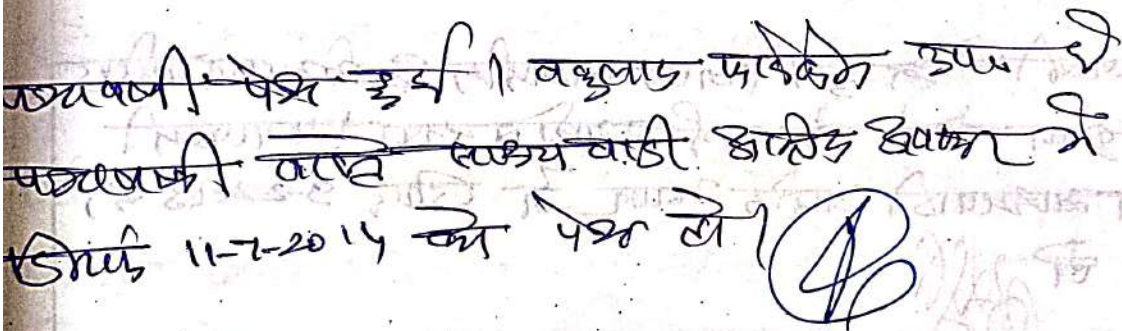 पत्रावली पेश हुई। वकुलाय फरिकेन उप० है
पत्रावली वास्ते साक्ष्य वादी अन्तिम अवसर में
दिनांक 11-7-2014 को पेश हो।